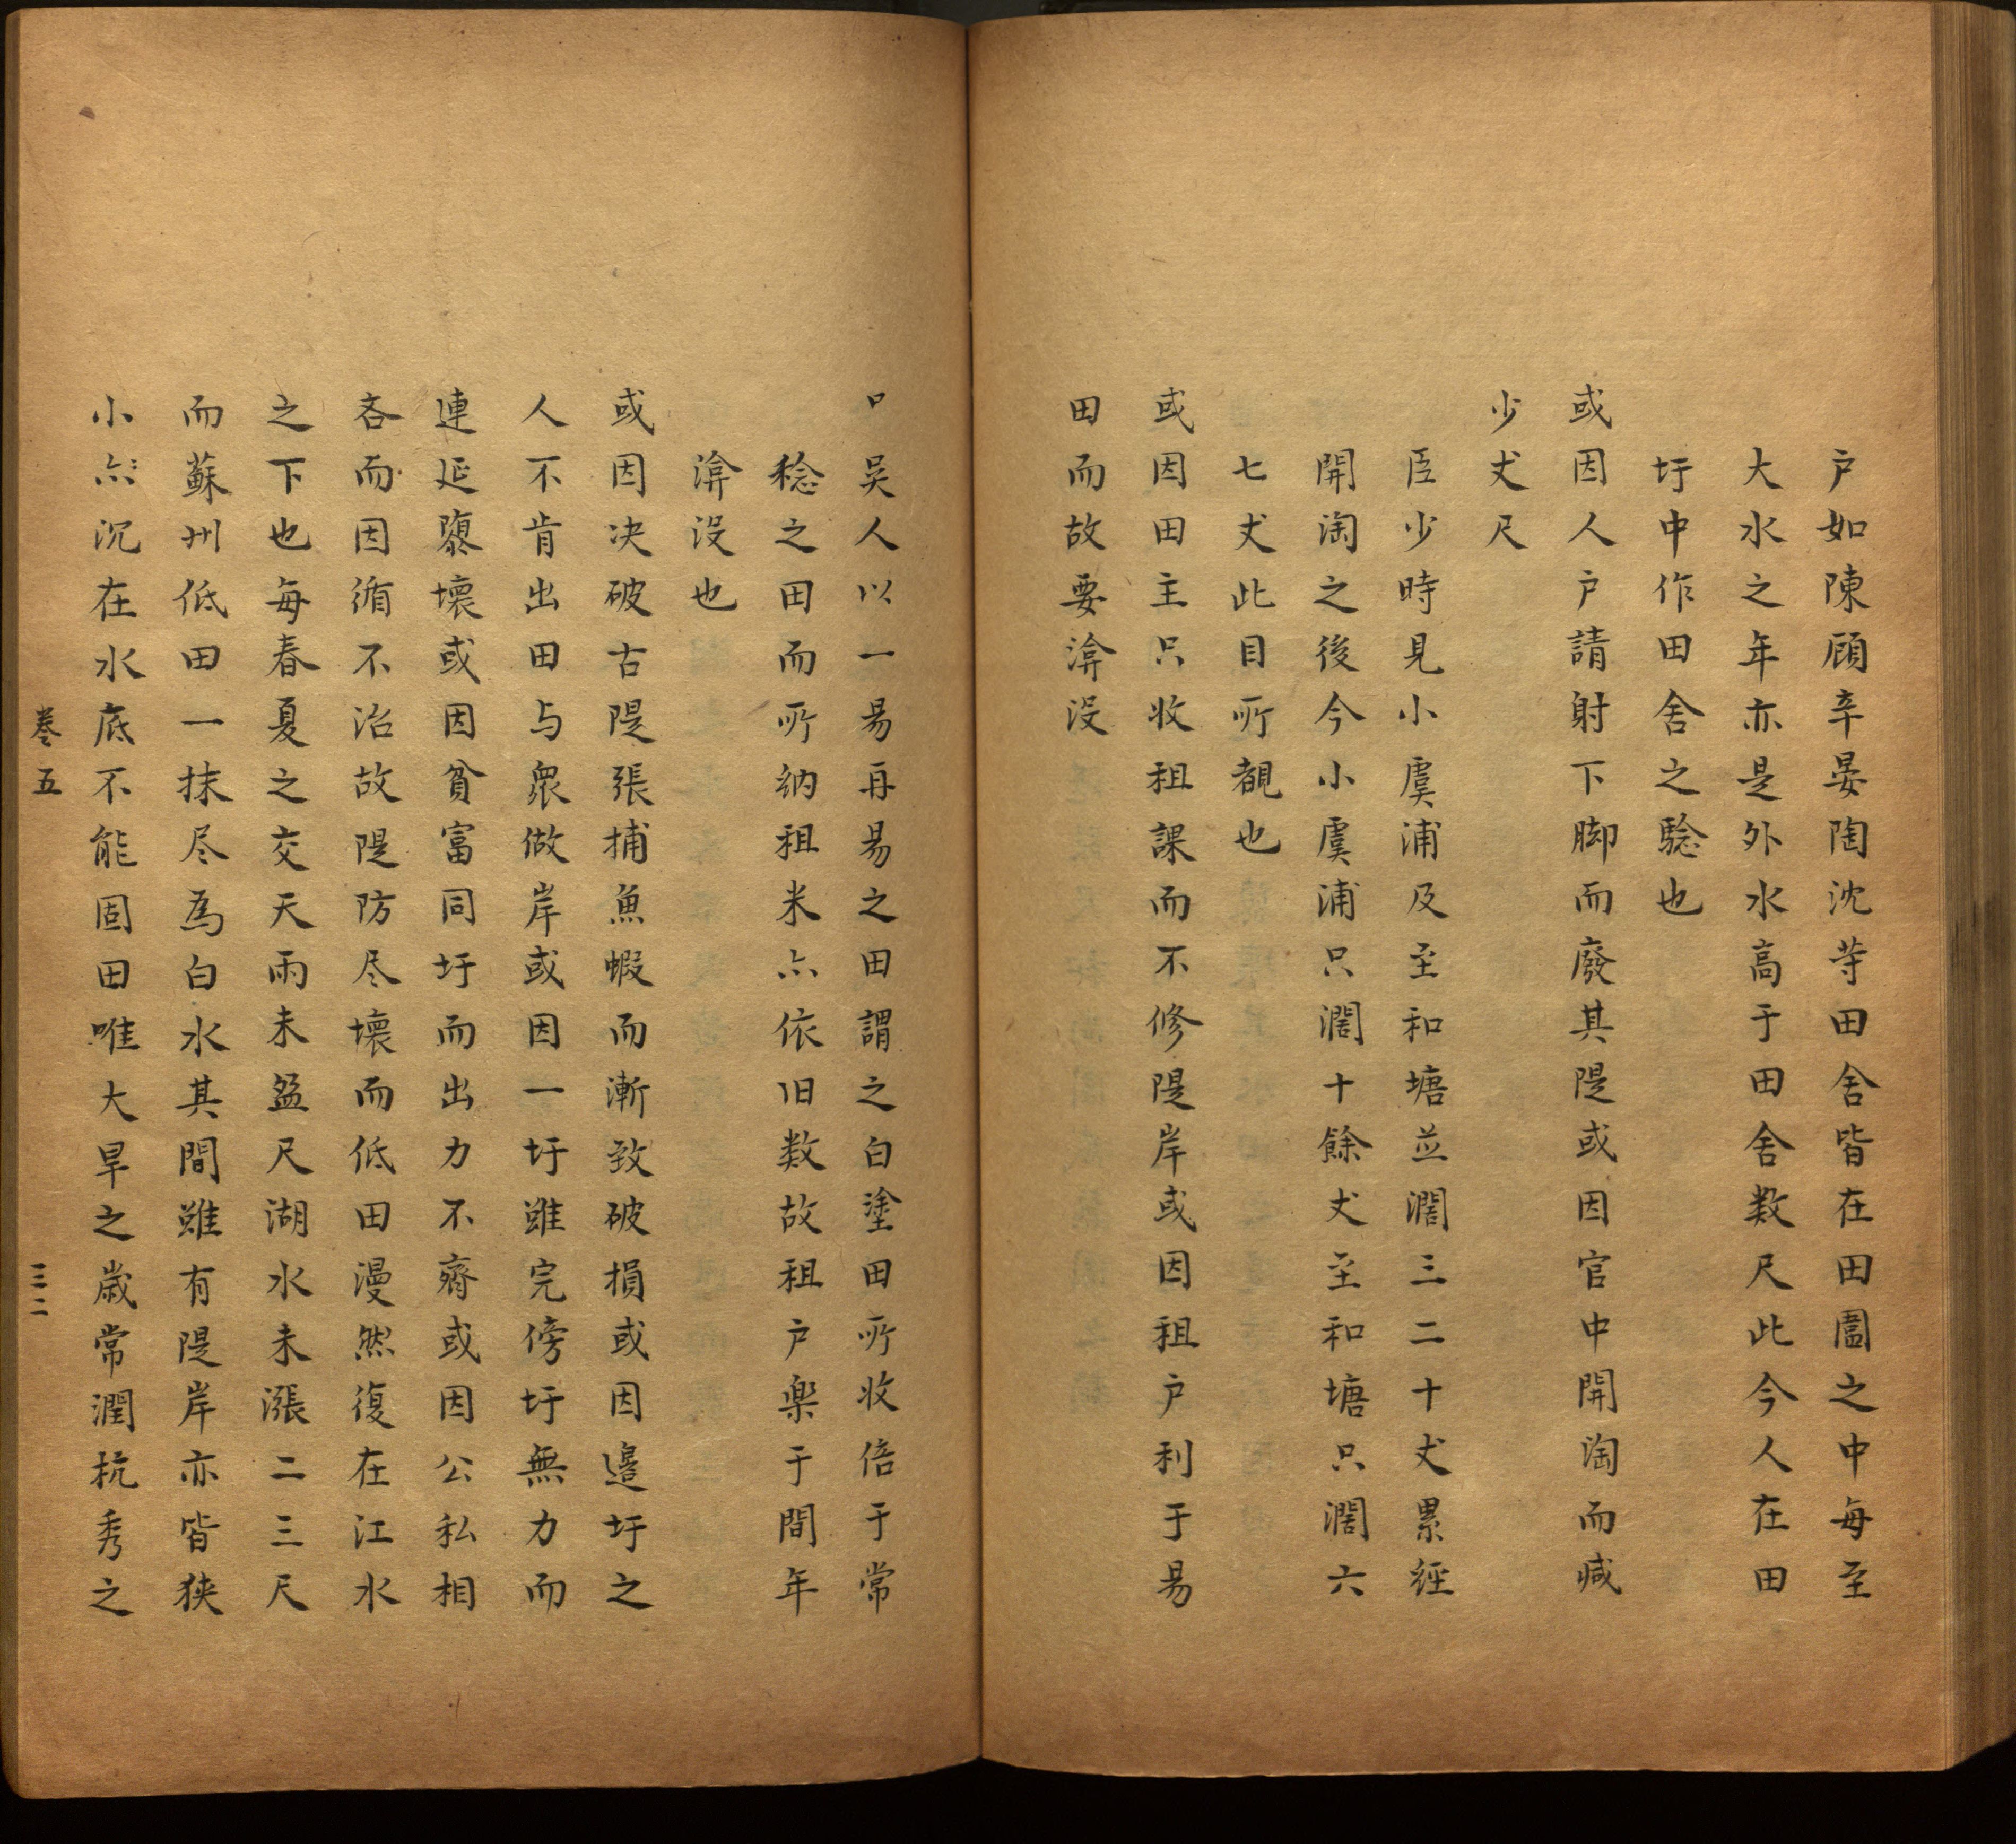 户如陳顧辛晏陶沈等田舍皆在田圍之中每至
大水之年亦是外水高于田舍数尺此今人在田
圩中作田舍之驗也
或因人户請射下脚而廢其隄或因官中開淘而減
少丈尺
臣少時見小虞浦及至和塘並濶三二十丈累經
開淘之後今小虞浦只濶十餘丈至和塘只濶六
七丈此目所覩也
或因田主只收租課而不修隄岸或因租户利于易
田而故要渰没
吴人以一易再易之田謂之白塗田所收倍于常
稔之田而所納租米亦依旧数故租户樂于間年
渰没也
或因决破古隄張捕魚蝦而漸致破損或因邉圩之
人不肯出田与衆做岸或因一圩雖完傍圩無力而
連延隳壊或因貧富同圩而出力不齊或因公私相
吝而因循不治故隄防尽壊而低田漫然復在江水
之下也每春夏之交天雨未盈尺湖水未漲二三尺
而蘇州低田一抹尽為白水其間雖有隄岸亦皆狭
小亦沉在水底不能固田唯大旱之歳常潤杭秀之
卷五
三二